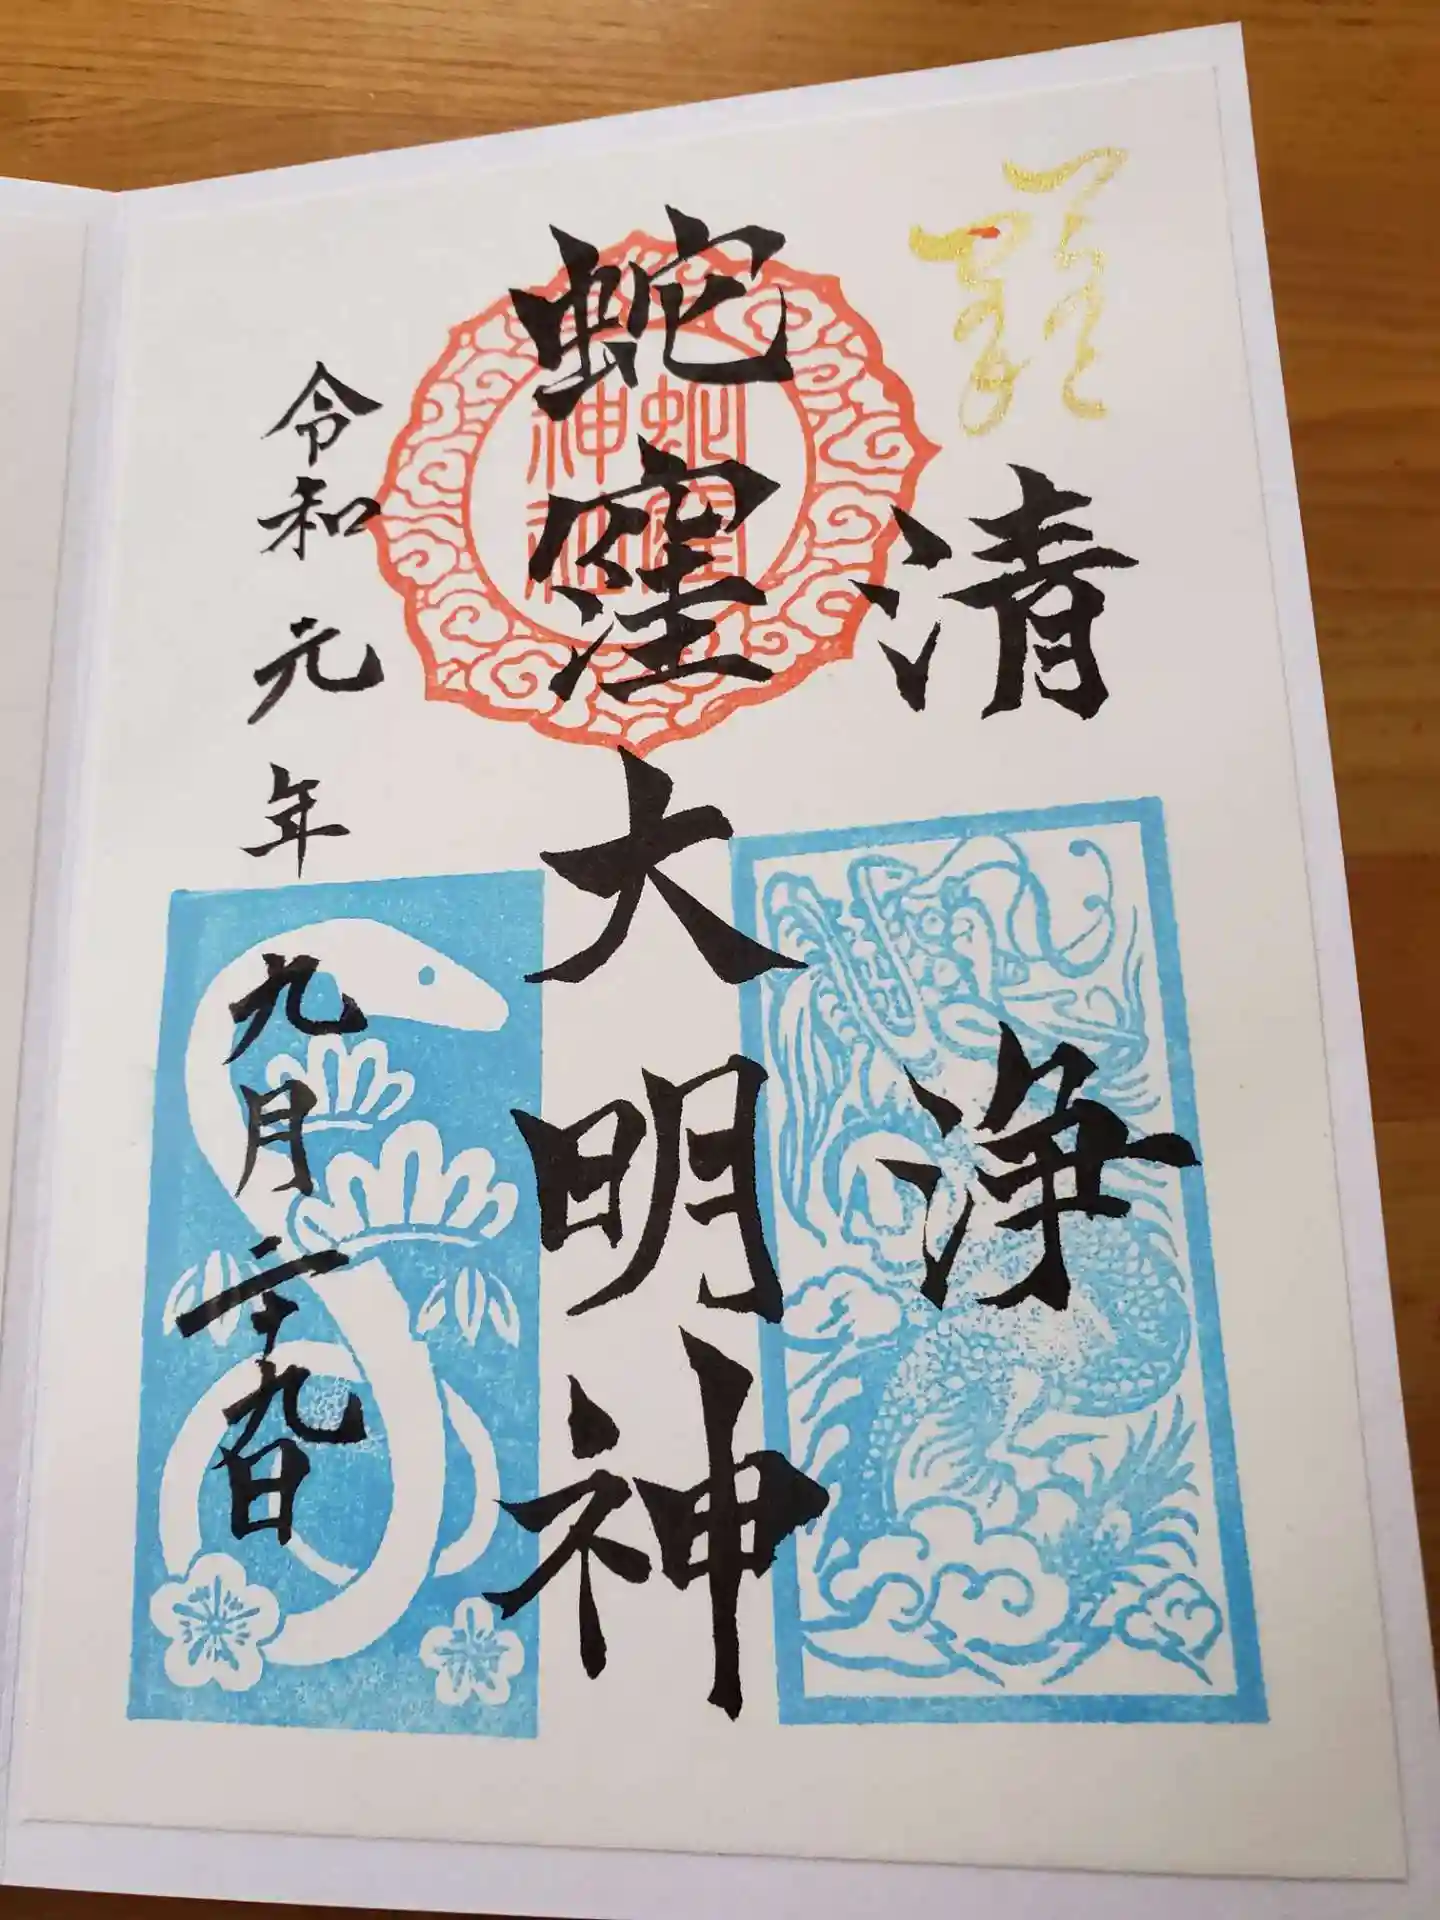 清浄
蛇窪大明神
蛇窪神社
令和元年九月二十九日